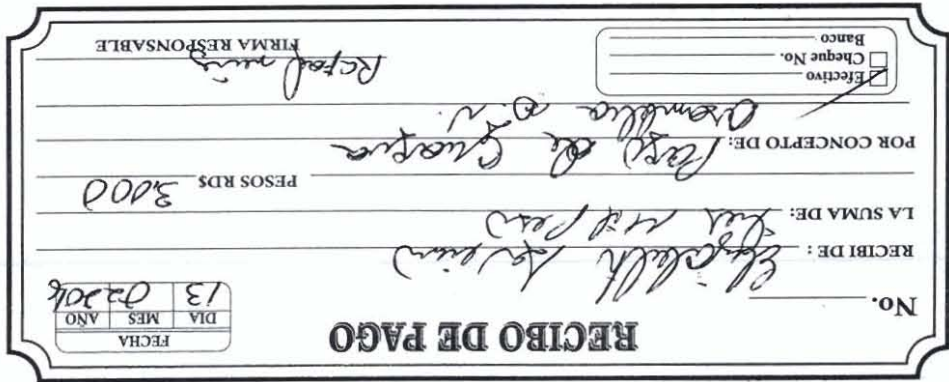 RECIBO DE PAGO
FECHA
DIA MES AÑO
13 02
No.
RECIBI DE: Elizabeth
LA SUMA DE: tres mil pesos
PESOS RD$ 3,000
POR CONCEPTO DE: Pago de
asamblea D.N.
Efectivo
Cheque No.
Banco
Rafael
FIRMA RESPONSABLE